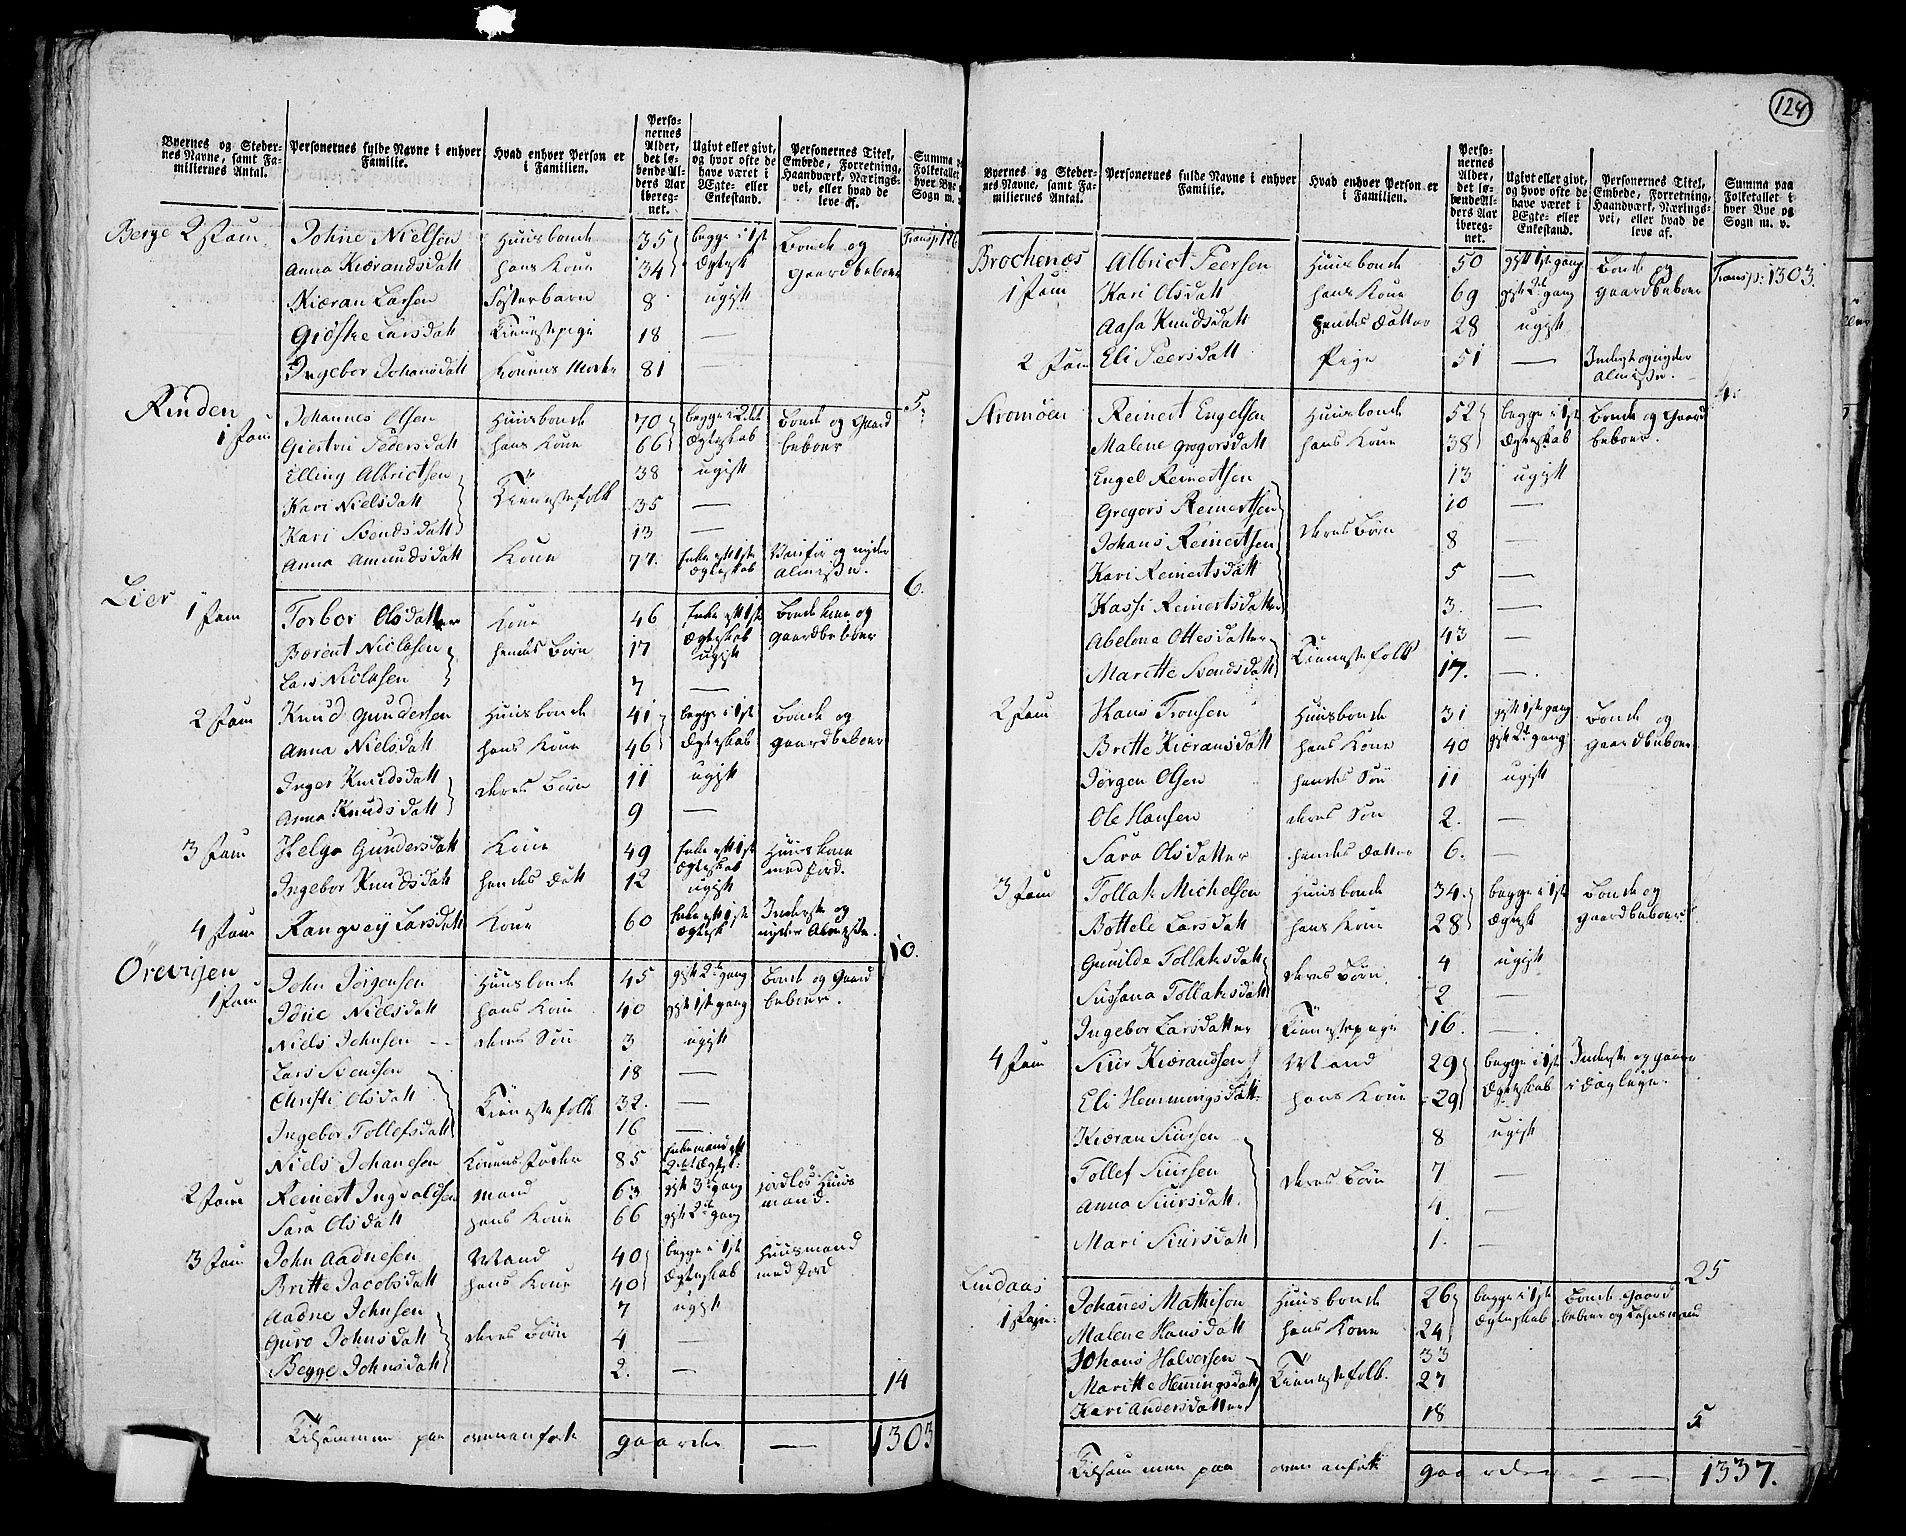 124
Byernes og Steder- Personernes fulde Navne i enhver Hvad enhver Person er Perso- Ugivt eller givt, Personernes Titel, Summa
nes Navne, samt Fa- Familie. i Familien. nernes og hvor ofte de Embede, Forretning, Folketallet
miliernes Antal. Alder, have været i Haandværk, Nærings- hver Bye
det lø- Ægte- eller vei, eller hvad de Sogn m.
bende Al- Enkestand. leve af.
ders Aar
ibereg-
net.
Berge 2 Fam Johne Nielsen Huusbonde 35 begge i 1st Bonde og
Anna Kiærandsdatt hans Kone 34 Ægtesk gaardbeboer
Kiæran Larsen Søsterbarn 8 ugift
Giøske Larsdatt Tienestepige 18 —
Ingebor Johansdatt Konens Moder 81 —
5.
Rinden 1 Fam Johannes Olsen Huusbonde 70 begge i 2det Bonde og Gaard
Giertru Pedersdatt hans Kone 66 Ægteskab beboer
Elling Albrictsen 38 ugift
Kari Nielsdatt Tienestefolk 35 —
Kari Svendsdatt 13 —
Anna Amundsdatt Kone 77. Enke eft 1ste Ægteskab Vanfør og nyder Almisse.
6.
Lier 1 Fam Torbor Olsdatter Kone 46 Enke eft 1st Bonde kone og
Bærent Niclasen hendes Børn 17 Ægteskab ugift gaardbeboer
Lars Niclasen 7 —
2 Fam Knud Gundersen Huusbonde 41 begge i 1st Bonde og
Anna Nielsdatt hans Kone 46 Ægteskab gaardbeboer
Inger Knudsdatt deres Børn 11 ugift
Anna Knudsdatt 9 —
3 Fam Helga Gundersdatt Kone 49 Enke eft 1st Ægteskab Huuskone
Ingebor Knudsdatt hendes Datt 12 ugift med Jord.
4 Fam Rangvey Larsdatt Kone 60 Enke eft 1ste Ægtesk Inderste og nyder Almisse.
10.
Orevigen
1 Fam John Jørgensen Huusbonde 45 gift 2de gang Bonde og Gaard
Idne Nielsdatt hans Kone 40 gift 1st gang beboer.
Niels Johnsen deres Søn 3 ugift
Lars Svendsen 18 —
Christi Olsdatt Tienestefolk 32. —
Ingebor Tollefsdatt 16 —
Niels Johansen Konens Fader 85 Enkemand eft 2det Ægtesk:
2 Fam Reinert Ingvaldsen mand 63 gift 3de gang jordløs Huus
Sara Olsdatt hans Kone 66 gift 2de gang mand.
3 Fam John Aadnesen Mand 40 begge i 1st Huusmand
Britte Jacobsdatt hans Kone 40 Ægteskab med Jord
Aadne Johnsen 7 ugift
Guro Johnsdatt deres Børn 4 —
Begge Johnsdatt 2. —
14
Tilsammen paa ovenanførte gaarder — 1303
Byernes og Steder- Personernes fulde Navne i enhver Hvad enhver Person er Perso- Ugivt eller givt, Personernes Titel, Summa paa
nes Navne, samt Fa- Familie. i Familien. nernes og hvor ofte de Embede, Forretning, Folketallet i
milernes Antal. Alder, have været i Haandværk, Nærings- hver Bye og
det lø- Ægte- eller vei, eller hvad de Sogn m. v.
bende Al- Enkestand. leve af.
ders Aar
iberegnet.
Brochenæs Albrict Peersen Huusbonde 50 gift 1st gang Bonde og Transp: 1303.
1 Fam Kari Olsdatt hans Kone 69 gift 2de gang gaardbeboer
Aasa Knudsdatt hendes Datter 28 ugift
2 Fam Eli Peersdatt Pige 51 — Inderst og nyder Almisse.
4.
Stromøen Reinert Engelsen Huusbonde 52 begge i 1st Bonde og Gaard
Malene Gregorsdatt hans Kone 38 Ægteskab beboer.
Engel Reinertsen 13 ugift
Gregors Reinertsen 10 —
Johans Reinertsen deres Børn 8 —
Kari Reinertsdatt 5 —
Kassi Reinertsdatter 3. —
Abelona Ottesdatter 43 —
Maritte Svendsdatt Tienestefolk 17. —
2 Fam Hans Tronsen Huusbonde 31 gift 1ste gang Bonde og
Britte Kiæransdatt hans Kone 40 gift 2de gang gaardbeboer
Jørgen Olsen hendes Søn 11 ugift
Ole Hansen deres Søn 2. —
Sara Olsdatter hendes Datter 6. —
3 Fam Tollak Michelsen Huusbonde 34. begge i 1st Bonde og
Bottele Larsdatt hans Kone 28 Ægtesk gaardbeboer
Gunilde Tollaksdatt deres Børn 4 ugift
Sussana Tollaksdatt 2 —
Ingebor Larsdatter Tienestepige 16. —
4 Fam Siur Kiærandsen Mand 29 begge i 1st Inderste og gaaer
Eli Hemmingsdatt hans Kone 29 Ægteskab i Dagleye.
Kiæran Siursen 8 ugift
Tollef Siursen 7 —
Anna Siursdatt deres Børn 4. —
Mari Siursdatt 1. —
25
Lindaas Johannes Mathisen Huusbonde 26 begge i 1st Bonde Gaard
1 Fam: Malene Hansdatt hans Kone 24 Ægteskab beboer og Lehnsmand
Johans Halversen 33
Maritte Hemingsdatt Tienestefolk. 27
Kari Andersdatter 18
5
Tilsammen paa ovenanførte gaarder — — 1337.